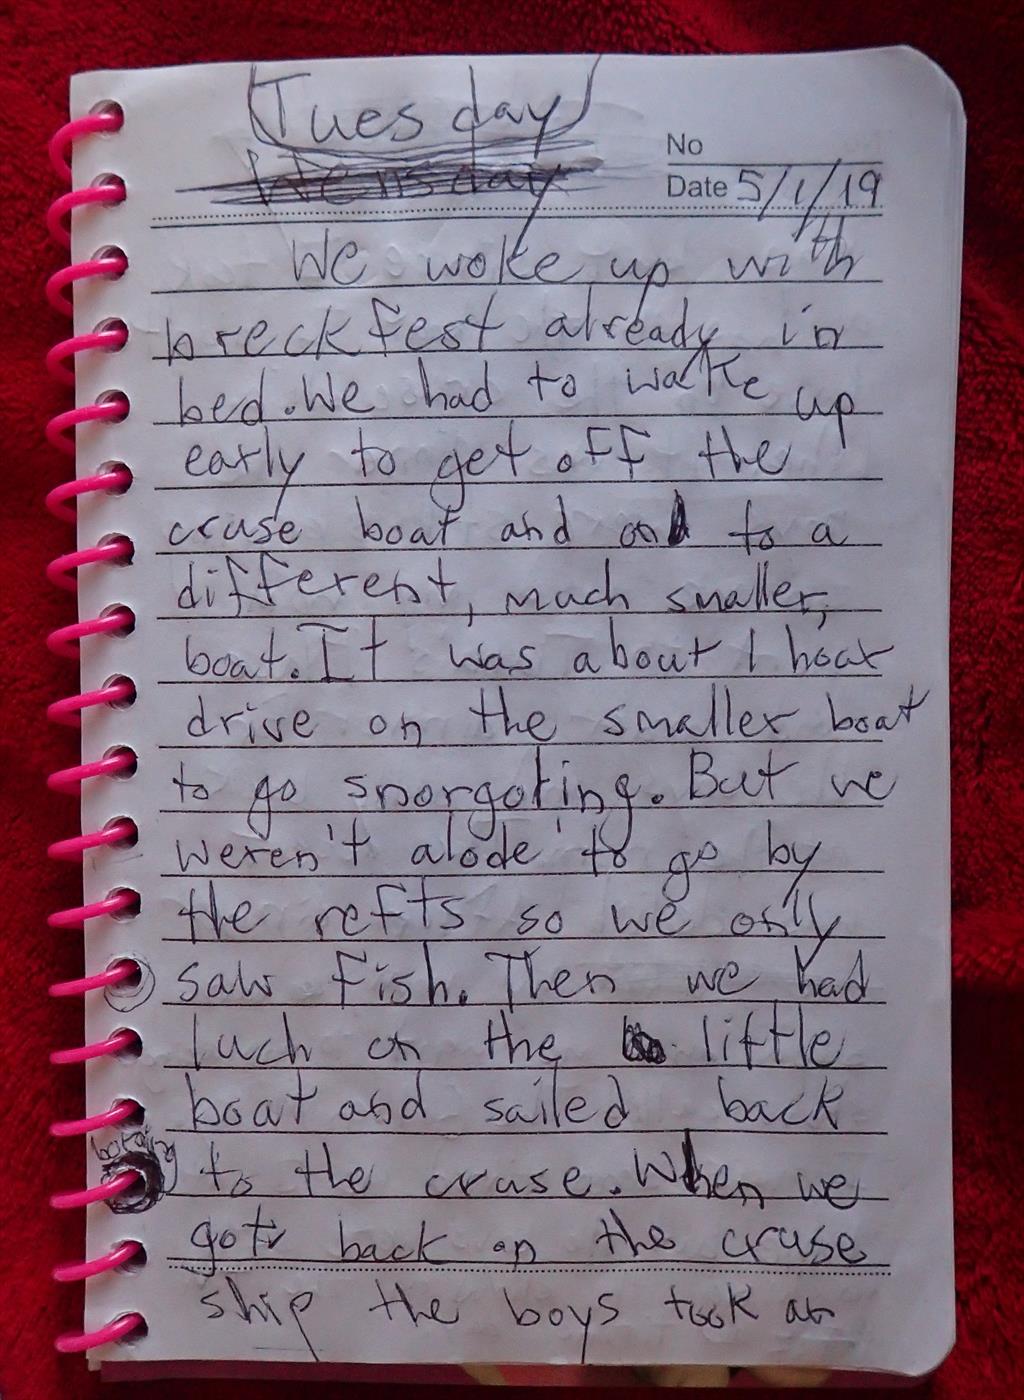 Tuesday
Wensday
No
Date 5/1/19
We woke up with
breckfest already in
bed. We had to wake up
early to get off the
cruse boat and on to a
different, much smaller,
boat. It was about 1 hour
drive on the smaller boat
to go snorgoling. But we
weren't alode to go by
the refts so we only
saw fish. Then we had
luch on the little
boat and sailed back
boring
to the cruse. When we
got back on the cruse
ship the boys took an